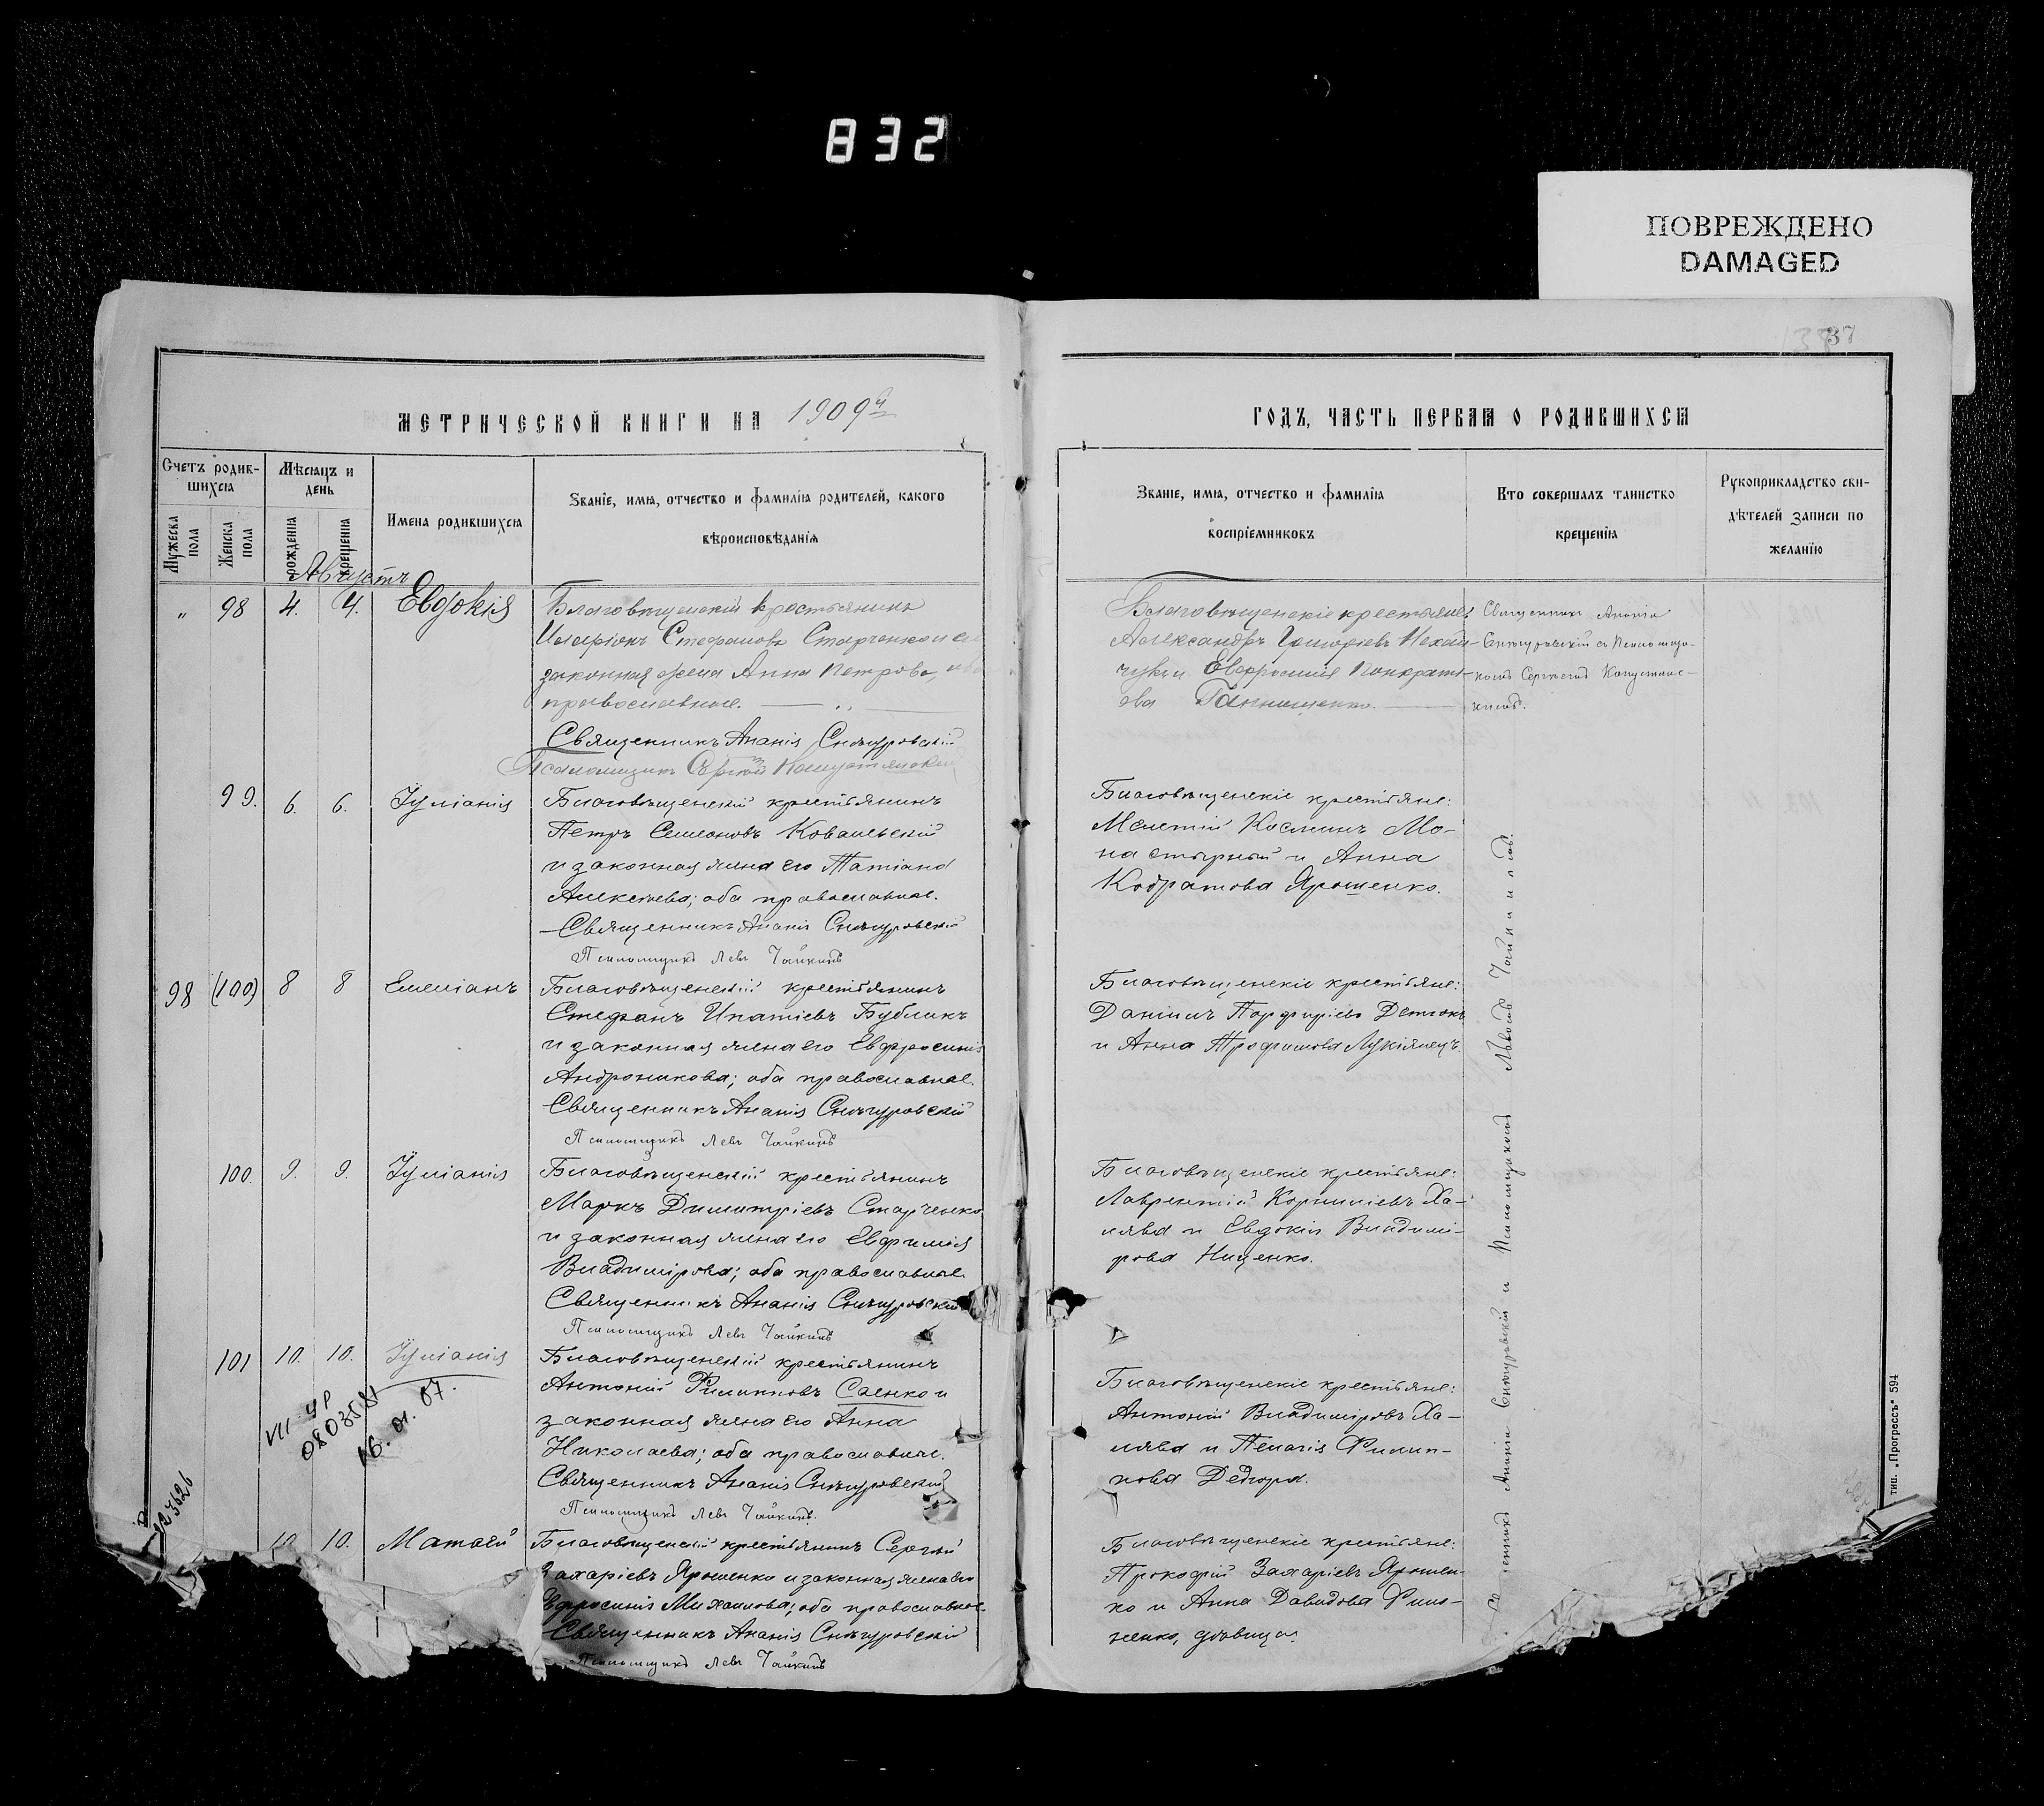 832
ПОВРЕЖДЕНО
DAMAGED
37
МЕТРИЧЕСКОЙ КНИГИ НА 1909й
ГОДЪ, ЧАСТЬ ПЕРВАЯ О РОДИВШИХСЯ
Счетъ родив-
шихся
Мѣсяцъ и
день
Мужеска пола
Женска пола
рожденія
крещенія
Имена родившихся
Званіе, имя, отчество и фамилія родителей, какого
вѣроисповѣданія
Званіе, имя, отчество и фамилія
воспріемниковъ
Кто совершалъ таинство
крещенія
Рукоприкладство сви-
дѣтелей записи по
желанію
Августъ
„ 98 4. 4. Евдокія
Благовѣщенскій крестьянинъ
Иларіонъ Стефановъ Старченко и его
законная жена Анна Петрова, оба
православные.
Священникъ Ананія Снѣгуровскій
Псаломщикъ Сергій
Благовѣщенскіе крестьяне
Александръ Григоріевъ Нехай-
чукъ и Евфросинія Панкрать-
ева
Священникъ Ананія
Снѣгуровскій съ Псаломщи-
комъ Сергіемъ
99. 6. 6. Іуліанія
Благовѣщенскій крестьянинъ
Петръ Симеоновъ Ковалевскій
и законная жена его Татіана
Алексѣева; оба православные.
Священникъ Ананія Снѣгуровскій
Псаломщикъ Левъ Чайкинъ
Благовѣщенскіе крестьяне:
Мелетій Косминъ Мо-
настырный и Анна
Кодратова Ярошенко.
98 (100) 8 8 Емеліанъ
Благовѣщенскій крестьянинъ
Стефанъ Ипатіевъ Бубликъ
и законная жена его Евфросинія
Андроникова; оба православные.
Священникъ Ананія Снѣгуровскій
Псаломщикъ Левъ Чайкинъ
Благовѣщенскіе крестьяне:
Даніилъ Порфиріевъ
и Анна Трофимова Лукіянецъ.
100. 9. 9. Іуліанія
Благовѣщенскій крестьянинъ
Маркъ Димитріевъ Старченко
и законная жена его Евфимія
Владимірова; оба православные.
Священникъ Ананія Снѣгуровскій
Псаломщикъ Левъ Чайкинъ
Благовѣщенскіе крестьяне:
Лаврентій Корниліевъ Ха-
лява и Евдокія Владимі-
рова Ищенко.
101 10. 10. Іуліанія
Благовѣщенскій крестьянинъ
Антоній Филипповъ Саенко и
законная жена его Анна
Николаева; оба православные.
Священникъ Ананія Снѣгуровскій
Псаломщикъ Левъ Чайкинъ.
Благовѣщенскіе крестьяне:
Антоній Владиміровъ Ха-
лява и Пелагія Филип-
пова Дегтяря.
VII УР
080358
16.01.07.
123626
10. 10. Матѳей
Благовѣщенскій крестьянинъ Сергій
Захаріевъ Ярошенко и законная жена его
Евфросинія Михаилова; оба православные.
Священникъ Ананія Снѣгуровскій
Псаломщикъ Левъ Чайкинъ
Благовѣщенскіе крестьяне:
Прокофій Захаріевъ Ярошен-
ко и Анна Давидова Фило-
ненко, дѣвица.
Священникъ Ананія Снѣгуровскій и Псаломщикомъ Львомъ Чайкинымъ.
тип. „Прогрессъ“ 594